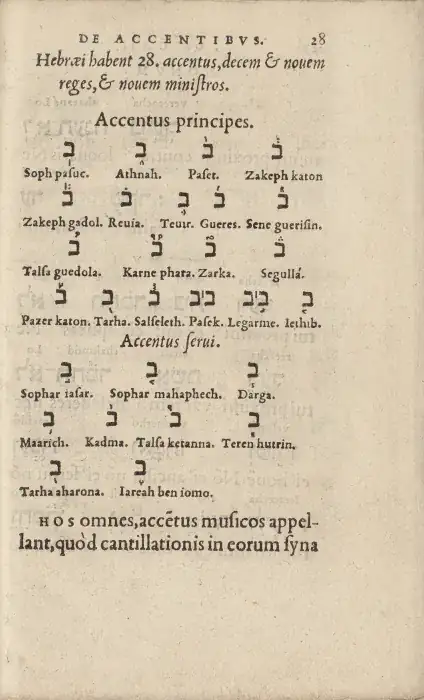 DE ACCENTIBVS. 28
Hebræi habent 28. accentus, decem & nouem
reges, & nouem miniſtros.
Accentus principes.
ב ב ב ב
Soph paſuc. Athnah. Paſet. Zakeph katon
ב ב ב ב ב
Zakeph gadol. Reuia. Teuir. Gueres. Sene gueriſin.
ב ב ב ב
Talſa guedola. Karne phara. Zarka. Segulla.
ב ב ב ב׀ב ב׀ב ב
Pazer katon. Tarha. Salſeleth. Paſek. Legarme. Iethib.
Accentus ſerui.
ב ב ב
Sophar iaſar. Sophar mahaphech. Darga.
ב ב ב ב
Maarich. Kadma. Talſa ketanna. Teren hutrin.
ב ב
Tarha aharona. Iareah ben iomo.
HOS omnes, accētus muſicos appel-
lant, quòd cantillationis in eorum ſyna